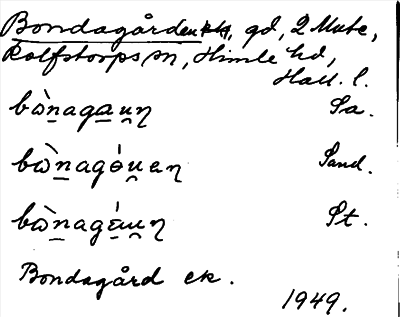 Bondagården, gd, 2 Mtl,
Rolfstorps sn, Himle hd,
Hall. l.
bòn̲aga̲u̲n Sa.
bòn̲agó̲u̲an Sand.
bòn̲agá̲u̲n St.
Bondagård ek.
1949.